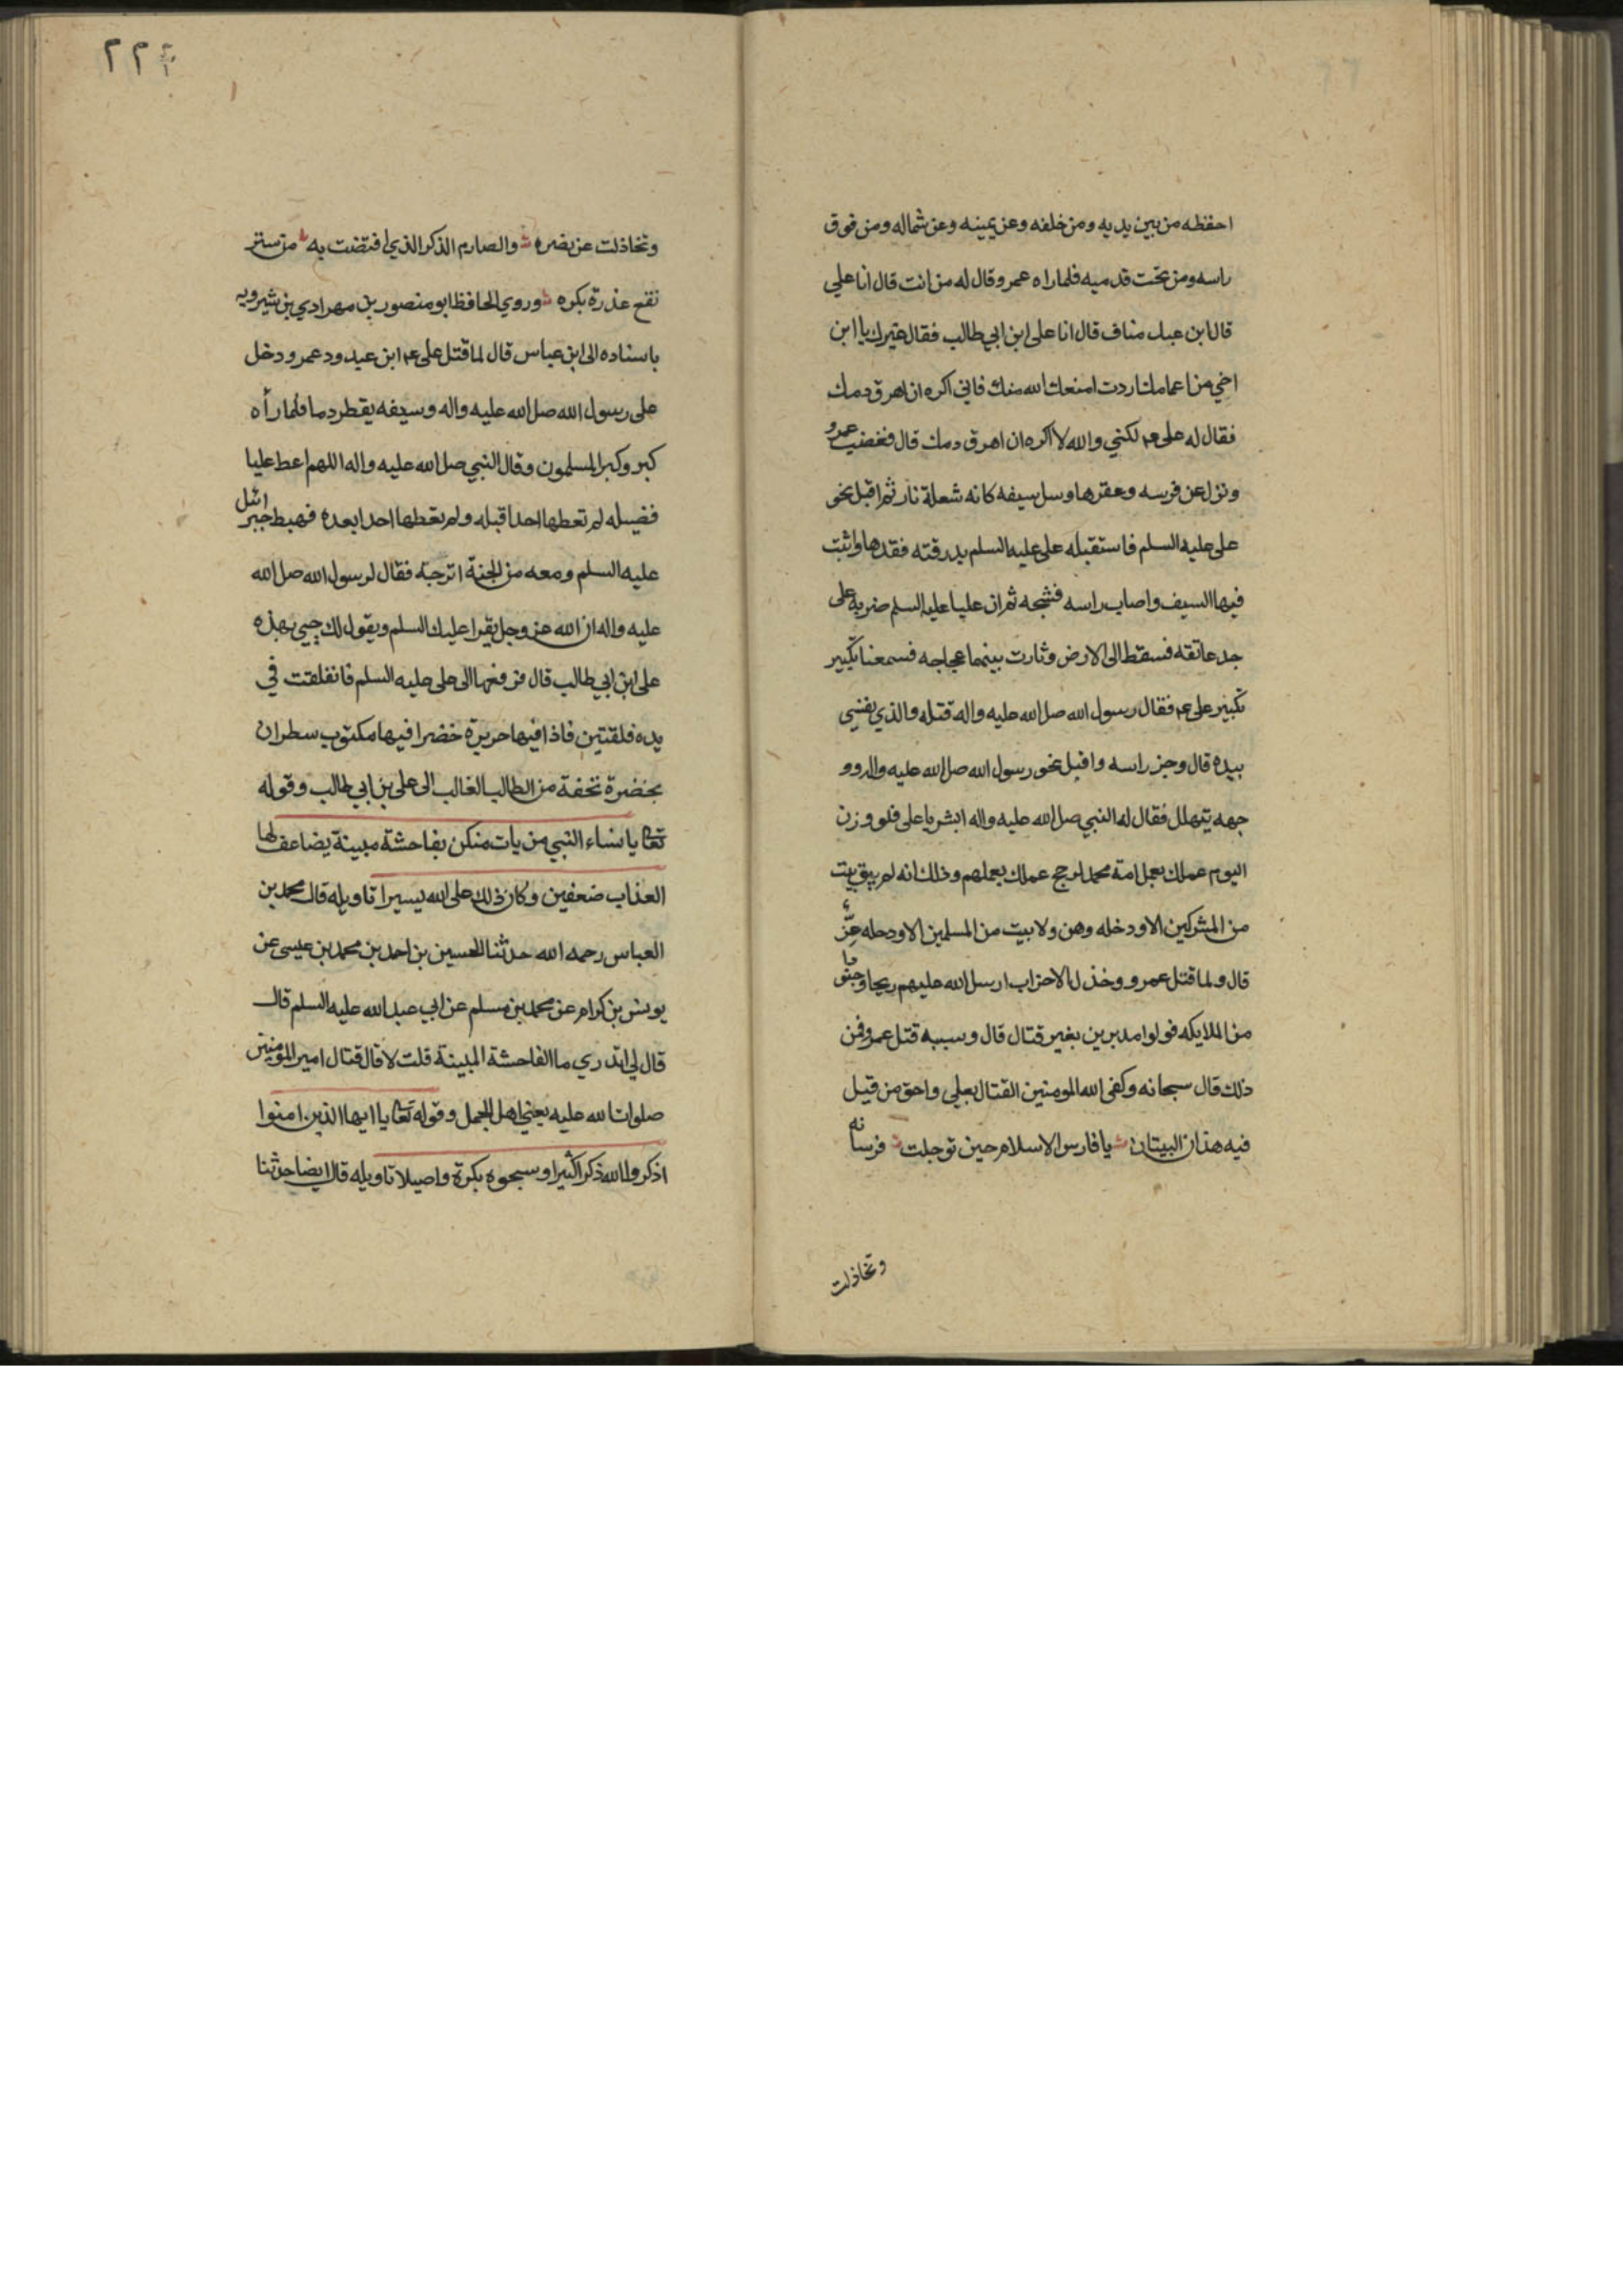 احفظه من بين يديه ومن خلفه وعن يمينه وعن شماله ومن فوق
راسه ومن تحت قدميه فلما راه عمرو قال له من انت قال انا علي
قال ابن عبد مناف قال انا على ابن ابي طالب فقال غيرك يا ابن
اخي من اعمامك اردت امنعك الله منك فاني اكره ان اهرق دمك
فقال له على عم لكني والله لا اكره ان اهرق دمك قال فغضب عمرو
ونزل عن فرسه وعقرها وسل سيفه كانه شعلة نار ثم اقبل نحو
على عليه السلم فاستقبله على عليه السلم بدرقته فقدها واثبت
فيها السيف واصاب راسه فشجه ثم ان عليا عليه السلم ضربه على
حد عاتقه فسقط الى الارض وثارت بينهما عجاجه فسمعنا تكبير
تكبير على عم فقال رسول الله صل الله عليه واله قتله والذي نفسي
بيده قال وجز راسه واقبل نحو رسول الله صل الله عليه واله وو
جهه يتهلل فقال له النبي صل الله عليه واله ابشر يا على فلو وزن
اليوم عملك بعمل امة محمد لرجح عملك بعملهم وذلك انه لم يبق بيت
من المشركين الا ودخله وهن ولا بيت من المسلمين الا ودخله عزّ
قال ولما قتل عمرو وخذل الاحزاب ارسل الله عليهم ريحا وجنودا
من الملايكه فولوا مدبرين بغير قتال قال وسببه قتل عمرو فمن
ذلك قال سبحانه وكفى الله المومنين القتال بعلي واحق من قيل
فيه هذان البيتان يا فارس الاسلام حين ترجلت فرسانه
وتخاذلت
٢٢٤
وتخاذلت عن نصره والصارم الذكر الذي افتضت به من ستر
نقع عذرة بكره وروي الحافظ ابو منصور بن مهرادي بن شيرويه
باسناده الى ابن عباس قال لما قتل على عم ابن عبد ود عمرو دخل
على رسول الله صل الله عليه واله وسيفه يقطر دما فلما رأه
كبر وكبر المسلمون وقال النبي صل الله عليه واله اللهم اعط عليا
فضيله لم تعطها احدا قبله ولم تعطها احدا بعده فهبط جبرائيل
عليه السلم ومعه من الجنة اترجة فقال لرسول الله صل الله
عليه واله ان الله عز وجل يقرا عليك السلم ويقول لك حيي بهذه
على ابن ابي طالب قال فرفعها الى على عليه السلم فانفلقت في
يده فلقتين فاذا فيها حريرة خضرا فيها مكتوب سطران
بخضرة تحفة من الطالب الغالب الى على بن ابي طالب وقوله
تعا يا نساء النبي من يات منكن بفاحشة مبينة يضاعف لها
العذاب ضعفين وكان ذلك على الله يسيرا تاويله قال محمد بن
العباس رحمه الله حدثنا الحسين بن احمد بن محمد بن عيسى عن
يونس بن كرام عن محمد بن مسلم عن ابي عبد الله عليه السلم قال
قال لي اتدري ما الفاحشة المبينة قلت لا قال قتال امير المومنين
صلوات الله عليه يعني اهل الجمل وقوله تعا يا ايها الذين امنوا
اذكروا الله ذكرا كثيرا وسبحوه بكرة واصيلا تاويله قال ايضا حدثنا